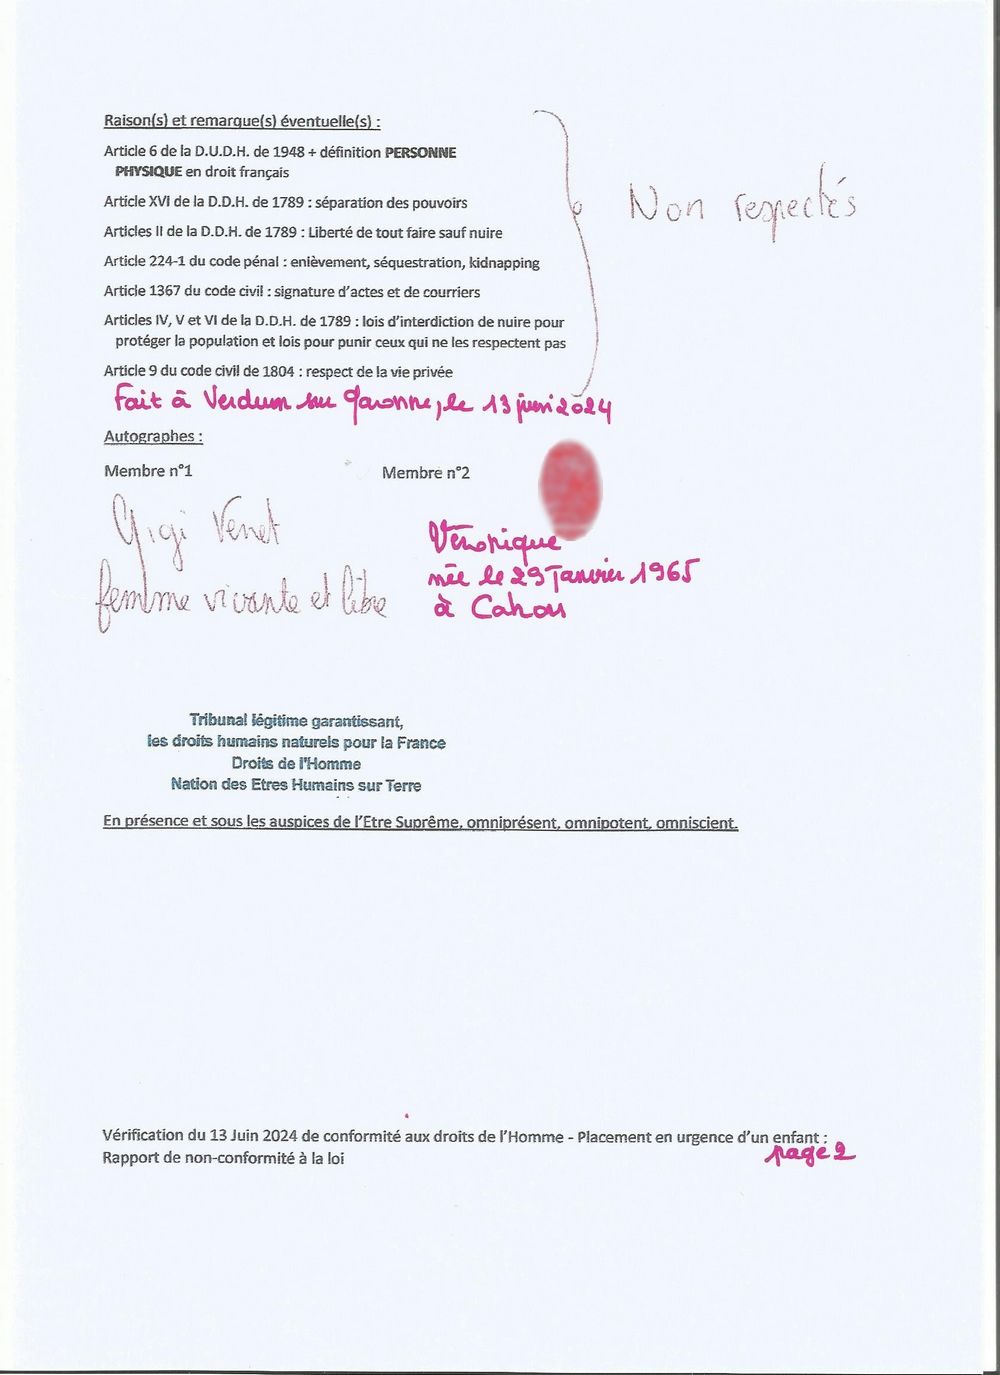 Raison(s) et remarque(s) éventuelle(s) :
Article 6 de la D.U.D.H. de 1948 + définition PERSONNE
PHYSIQUE en droit français
Article XVI de la D.D.H. de 1789 : séparation des pouvoirs
Articles II de la D.D.H. de 1789 : Liberté de tout faire sauf nuire
Article 224-1 du code pénal : enlèvement, séquestration, kidnapping
Article 1367 du code civil : signature d'actes et de courriers
Articles IV, V et VI de la D.D.H. de 1789 : lois d'interdiction de nuire pour
protéger la population et lois pour punir ceux qui ne les respectent pas
Article 9 du code civil de 1804 : respect de la vie privée
Non respectés
Fait à Verdun sur Garonne, le 13 juin 2024
Autographes :
Membre n°1
Membre n°2
Gigi Venet
femme vivante et libre
Véronique
née le 29 Janvier 1965
à Cahors
Tribunal légitime garantissant,
les droits humains naturels pour la France
Droits de l'Homme
Nation des Etres Humains sur Terre
En présence et sous les auspices de l'Etre Suprême, omniprésent, omnipotent, omniscient.
Vérification du 13 Juin 2024 de conformité aux droits de l'Homme - Placement en urgence d'un enfant :
Rapport de non-conformité à la loi
page 2